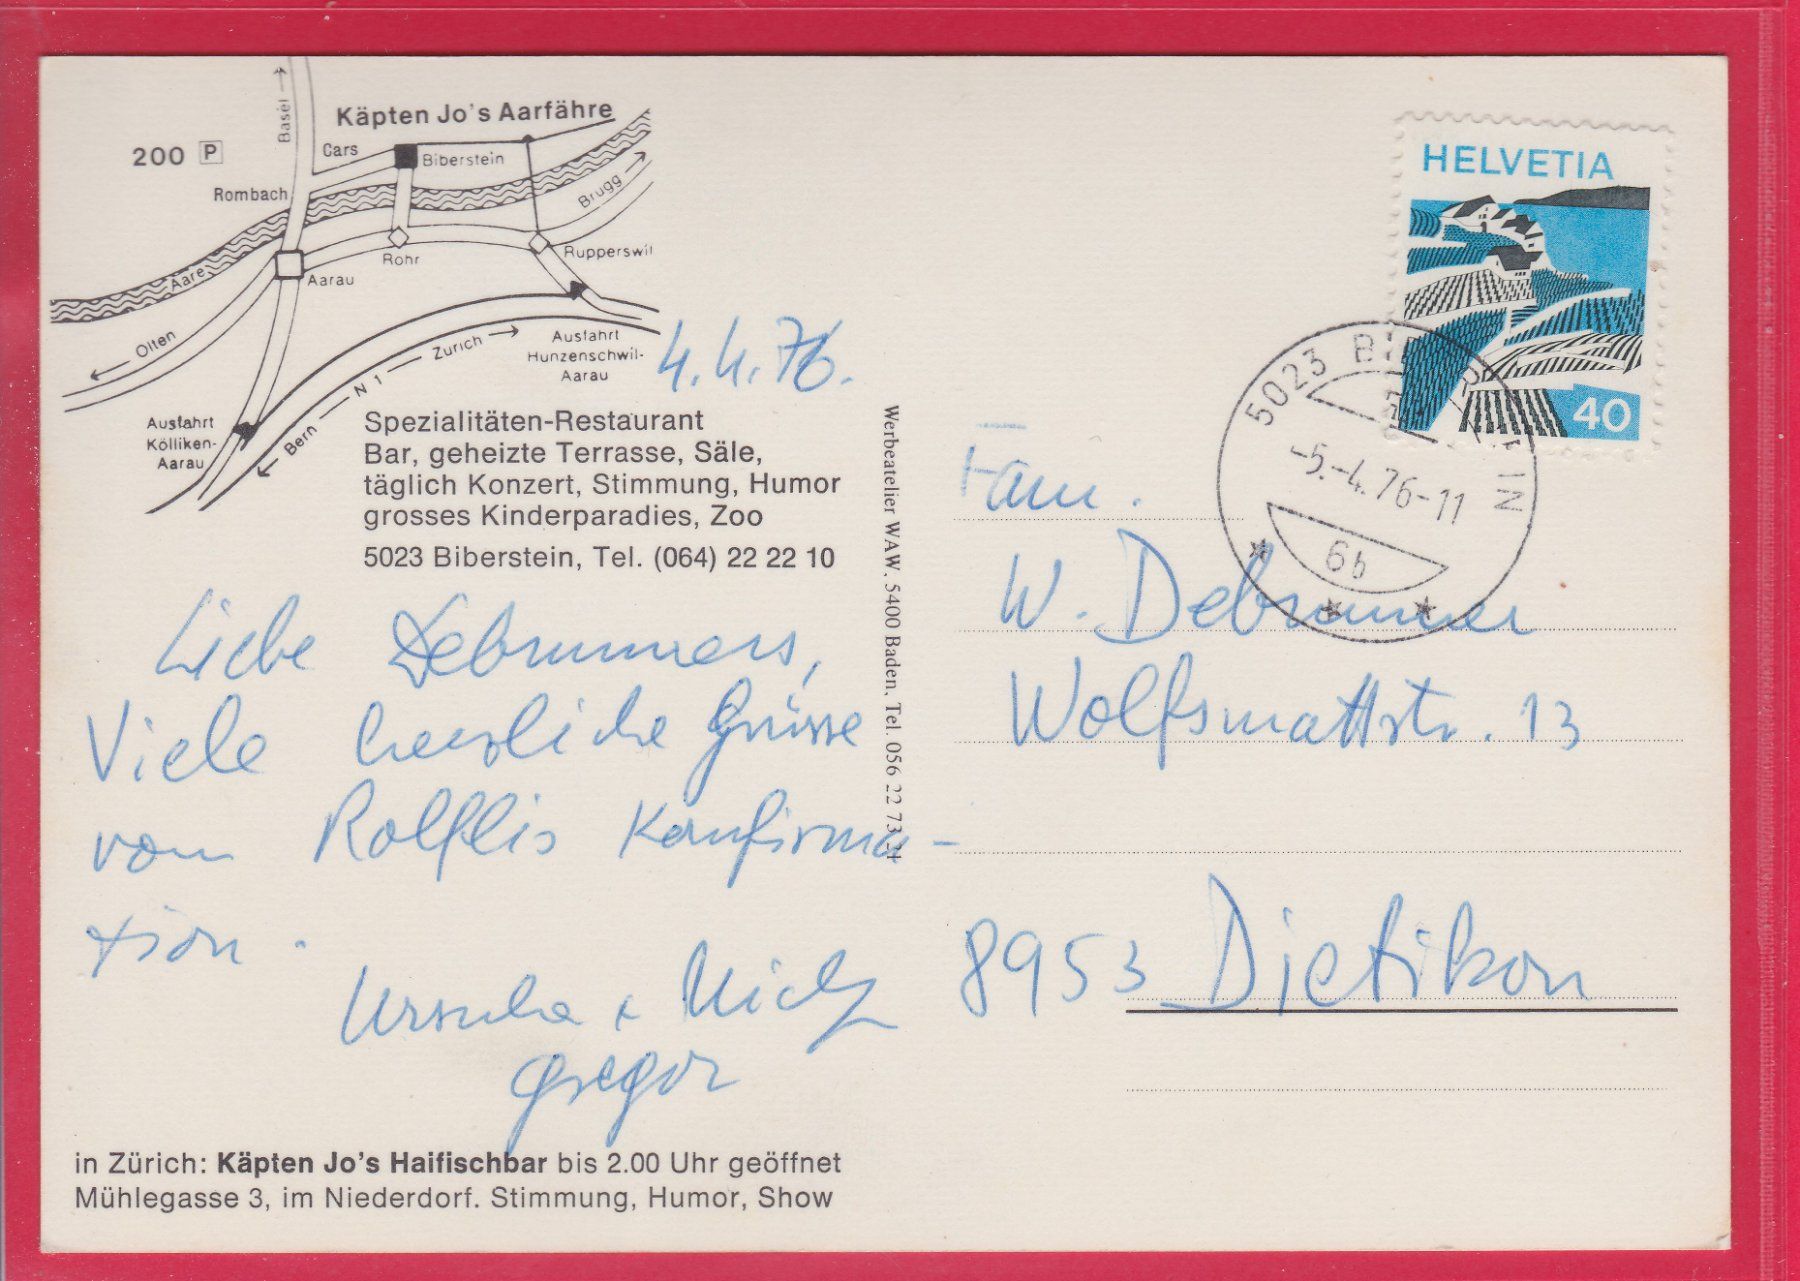 Käpten Jo's Aarfähre
200 P
Basel
Cars
Biberstein
Rombach
Brugg
Aare
Aarau
Rohr
Rupperswil
Olten
Zürich
Ausfahrt
Hunzenschwil-
Aarau
N 1
Bern
Ausfahrt
Kölliken-
Aarau
4.4.76.
Spezialitäten-Restaurant
Bar, geheizte Terrasse, Säle,
täglich Konzert, Stimmung, Humor
grosses Kinderparadies, Zoo
5023 Biberstein, Tel. (064) 22 22 10
Liebe Debrunners,
Viele herzliche Grüsse
vom Rolflis Konfirma-
tion.
Ursula +
Gregor
in Zürich: Käpten Jo's Haifischbar bis 2.00 Uhr geöffnet
Mühlegasse 3, im Niederdorf. Stimmung, Humor, Show
Werbeatelier WAW. 5400 Baden. Tel. 056 22 73
HELVETIA
40
5023 BIBERSTEIN
-5.-4.76-11
6b
Fam.
W. Debrunner
Wolfsmattstr. 13
8953 Dietikon